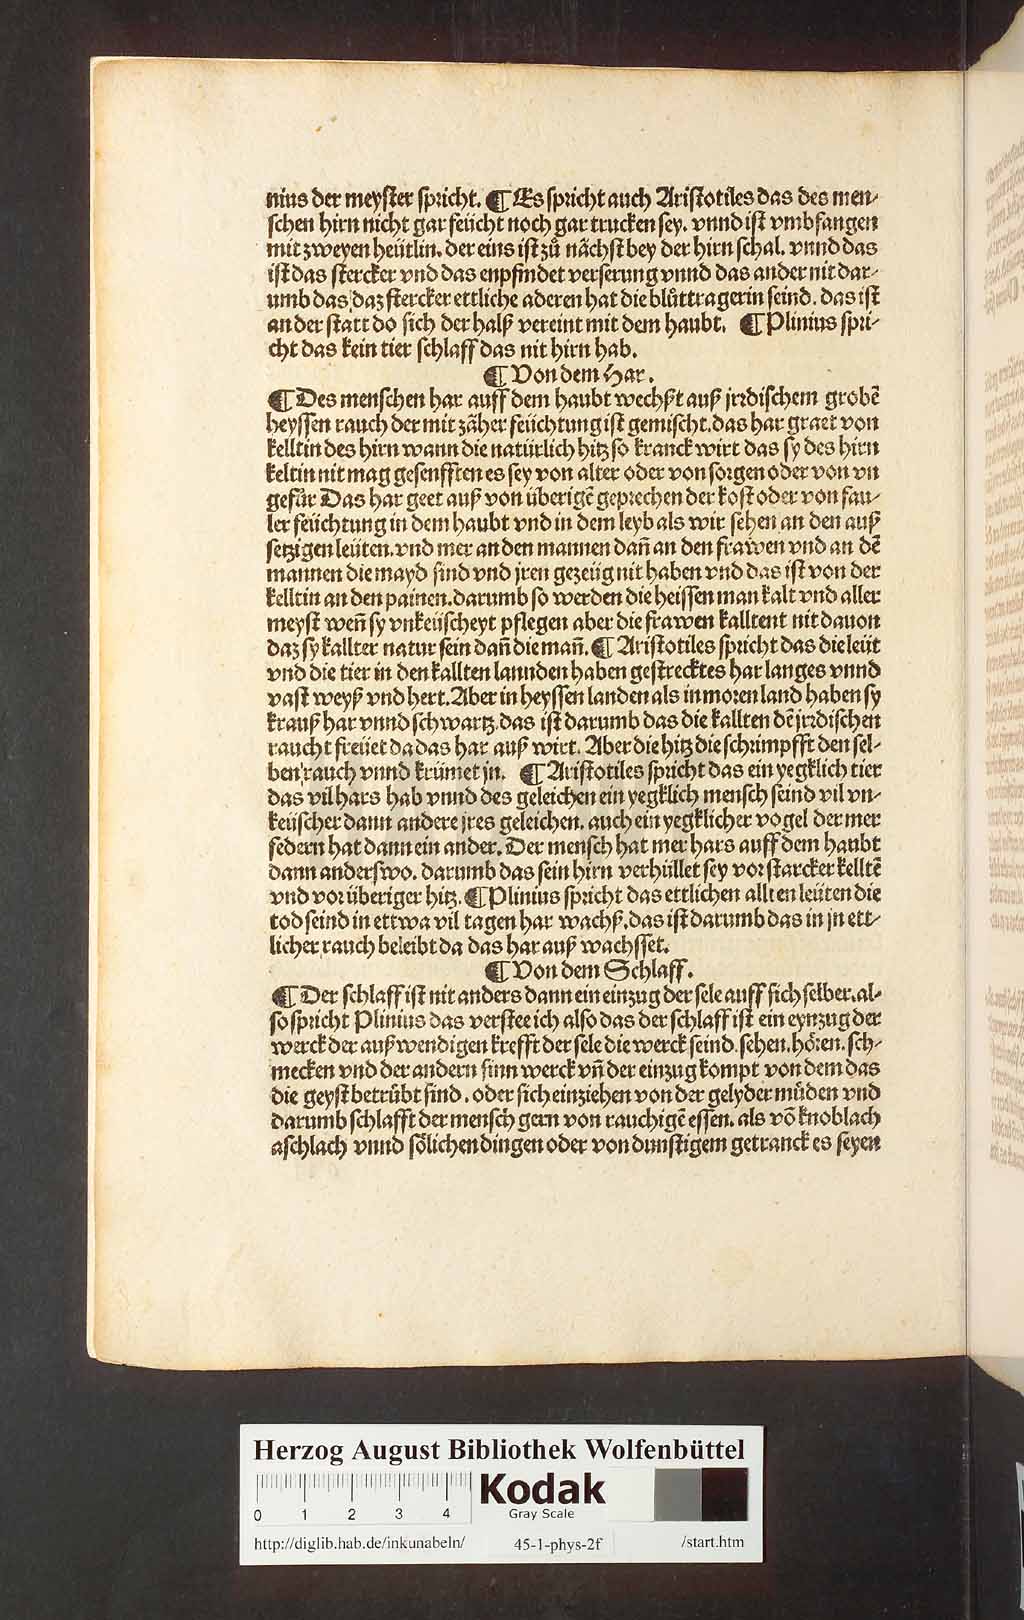 nius der meyster spricht. ¶ Es spricht auch Aristotiles das des men-
schen hirn nicht gar feücht noch gar trucken sey. vnnd ist vmbfangen
mit zweyen heütlin. der eins ist zů nächst bey der hirn schal. vnnd das
ist das stercker vnd das enpfindet verserung vnnd das ander nit dar-
umb das daz stercker ettliche aderen hat die blůttragerin seind. das ist
an der statt do sich der halß vereint mit dem haubt. ¶ Plinius spri-
cht das kein tier schlaff das nit hirn hab.
¶ Von dem Har.
¶ Des menschen har auff dem haubt wechßt auß jrrdischem grobē
heyssen rauch der mit zäher feüchtung ist gemischt. das har graet von
kelltin des hirn wann die natürlich hitz so kranck wirt das sy des hirn
keltin nit mag gesenfften es sey von alter oder von sorgen oder von vn
gefår Das har geet auß von überigē geprechen der kost oder von fau-
ler feüchtung in dem haubt vnd in dem leyb als wir sehen an den auß
setzigen leüten. vnd mer an den mannen dañ an den frawen vnd an dē
mannen die mayd sind vnd jren gezeüg nit haben vnd das ist von der
kelltin an den painen. darumb so werden die heissen man kalt vnd aller
meyst weñ sy vnkeüscheyt pflegen aber die frawen kalltent nit dauon
daz sy kallter natur sein dañ die mañ. ¶ Aristotiles spricht das die leüt
vnd die tier in den kallten lannden haben gestrecktes har langes vnnd
vast weyß vnd hert. Aber in heyssen landen als in moren land haben sy
krauß har vnnd schwartz. das ist darumb das die kallten dē jrrdischen
raucht freüet da das har auß wirt. Aber die hitz die schrimpfft den sel-
ben rauch vnnd krümet jn. ¶ Aristotiles spricht das ein yegklich tier
das vil hars hab vnnd des geleichen ein yegklich mensch seind vil vn-
keüscher dann andere jres geleichen. auch ein yegklicher vogel der mer
federn hat dann ein ander. Der mensch hat mer hars auff dem haubt
dann anderswo. darumb das sein hirn verhüllet sey vor starcker kelltē
vnd vor überiger hitz. ¶ Plinius spricht das ettlichen allten leüten die
tod seind in ettwa vil tagen har wachß. das ist darumb das in jn ett-
licher rauch beleibt da das har auß wachsset.
¶ Von dem Schlaff.
¶ Der schlaff ist nit anders dann ein einzug der sele auff sich selber. al-
so spricht Plinius das verstee ich also das der schlaff ist ein eynzug der
werck der außwendigen krefft der sele die werck seind. sehen. hören. sch-
mecken vnd der andern sinn werck vñ der einzug kompt von dem das
die geyst betrübt sind. oder sich einziehen von der gelyder müden vnd
darumb schlafft der mensch gern von rauchigē essen. als vō knoblach
aschlach vnnd sölichen dingen oder von dunstigem getranck es seyen
Herzog August Bibliothek Wolfenbüttel
0 1 2 3 4
Kodak
Gray Scale
http://diglib.hab.de/inkunabeln/ 45-1-phys-2f /start.htm